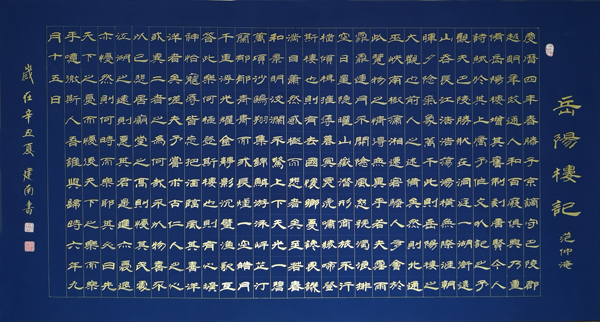 岳陽樓記
范仲淹
慶曆四年春滕子京謫守巴陵郡
越明年政通人和百廢俱興乃重
脩岳陽樓增其舊制刻唐賢今人
詩賦於其上屬予作文以記之予
觀夫巴陵勝狀在洞庭一湖銜遠
山吞長江浩浩蕩蕩橫無際涯朝
暉夕陰氣象萬千此則岳陽樓之
大觀也前人之述備矣然則北通
巫峽南極瀟湘遷客騷人多會於
此覽物之情得無異乎若夫霪雨
霏霏連月不開陰風怒號濁浪排
空日星隱曜山嶽潛形商旅不行
檣傾楫摧薄暮冥冥虎嘯猿啼登
斯樓也則有去國懷鄉憂讒畏譏
滿目蕭然感極而悲者矣至若春
和景明波瀾不驚上下天光一碧
萬頃沙鷗翔集錦鱗游泳岸芷汀
蘭郁郁青青而或長煙一空皓月
千里浮光耀金靜影沉璧漁歌互
答此樂何極登斯樓也則有心曠
神怡寵辱皆忘把酒臨風其喜洋
洋者矣嗟夫予嘗求古仁人之心
或異二者之為何哉不以物喜不
以己悲居廟堂之高則憂其民處
江湖之遠則憂其君是進亦憂退
亦憂然則何時而樂耶其必曰先
天下之憂而憂後天下之樂而樂
乎噫微斯人吾誰與歸時六年九
月十五日
歲在辛丑夏建南書